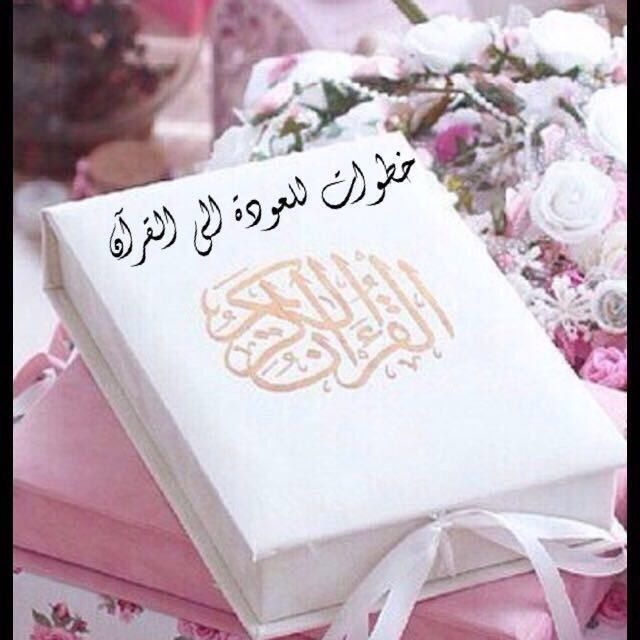 خطوات للعودة الى القرآن
القرآن الكريم